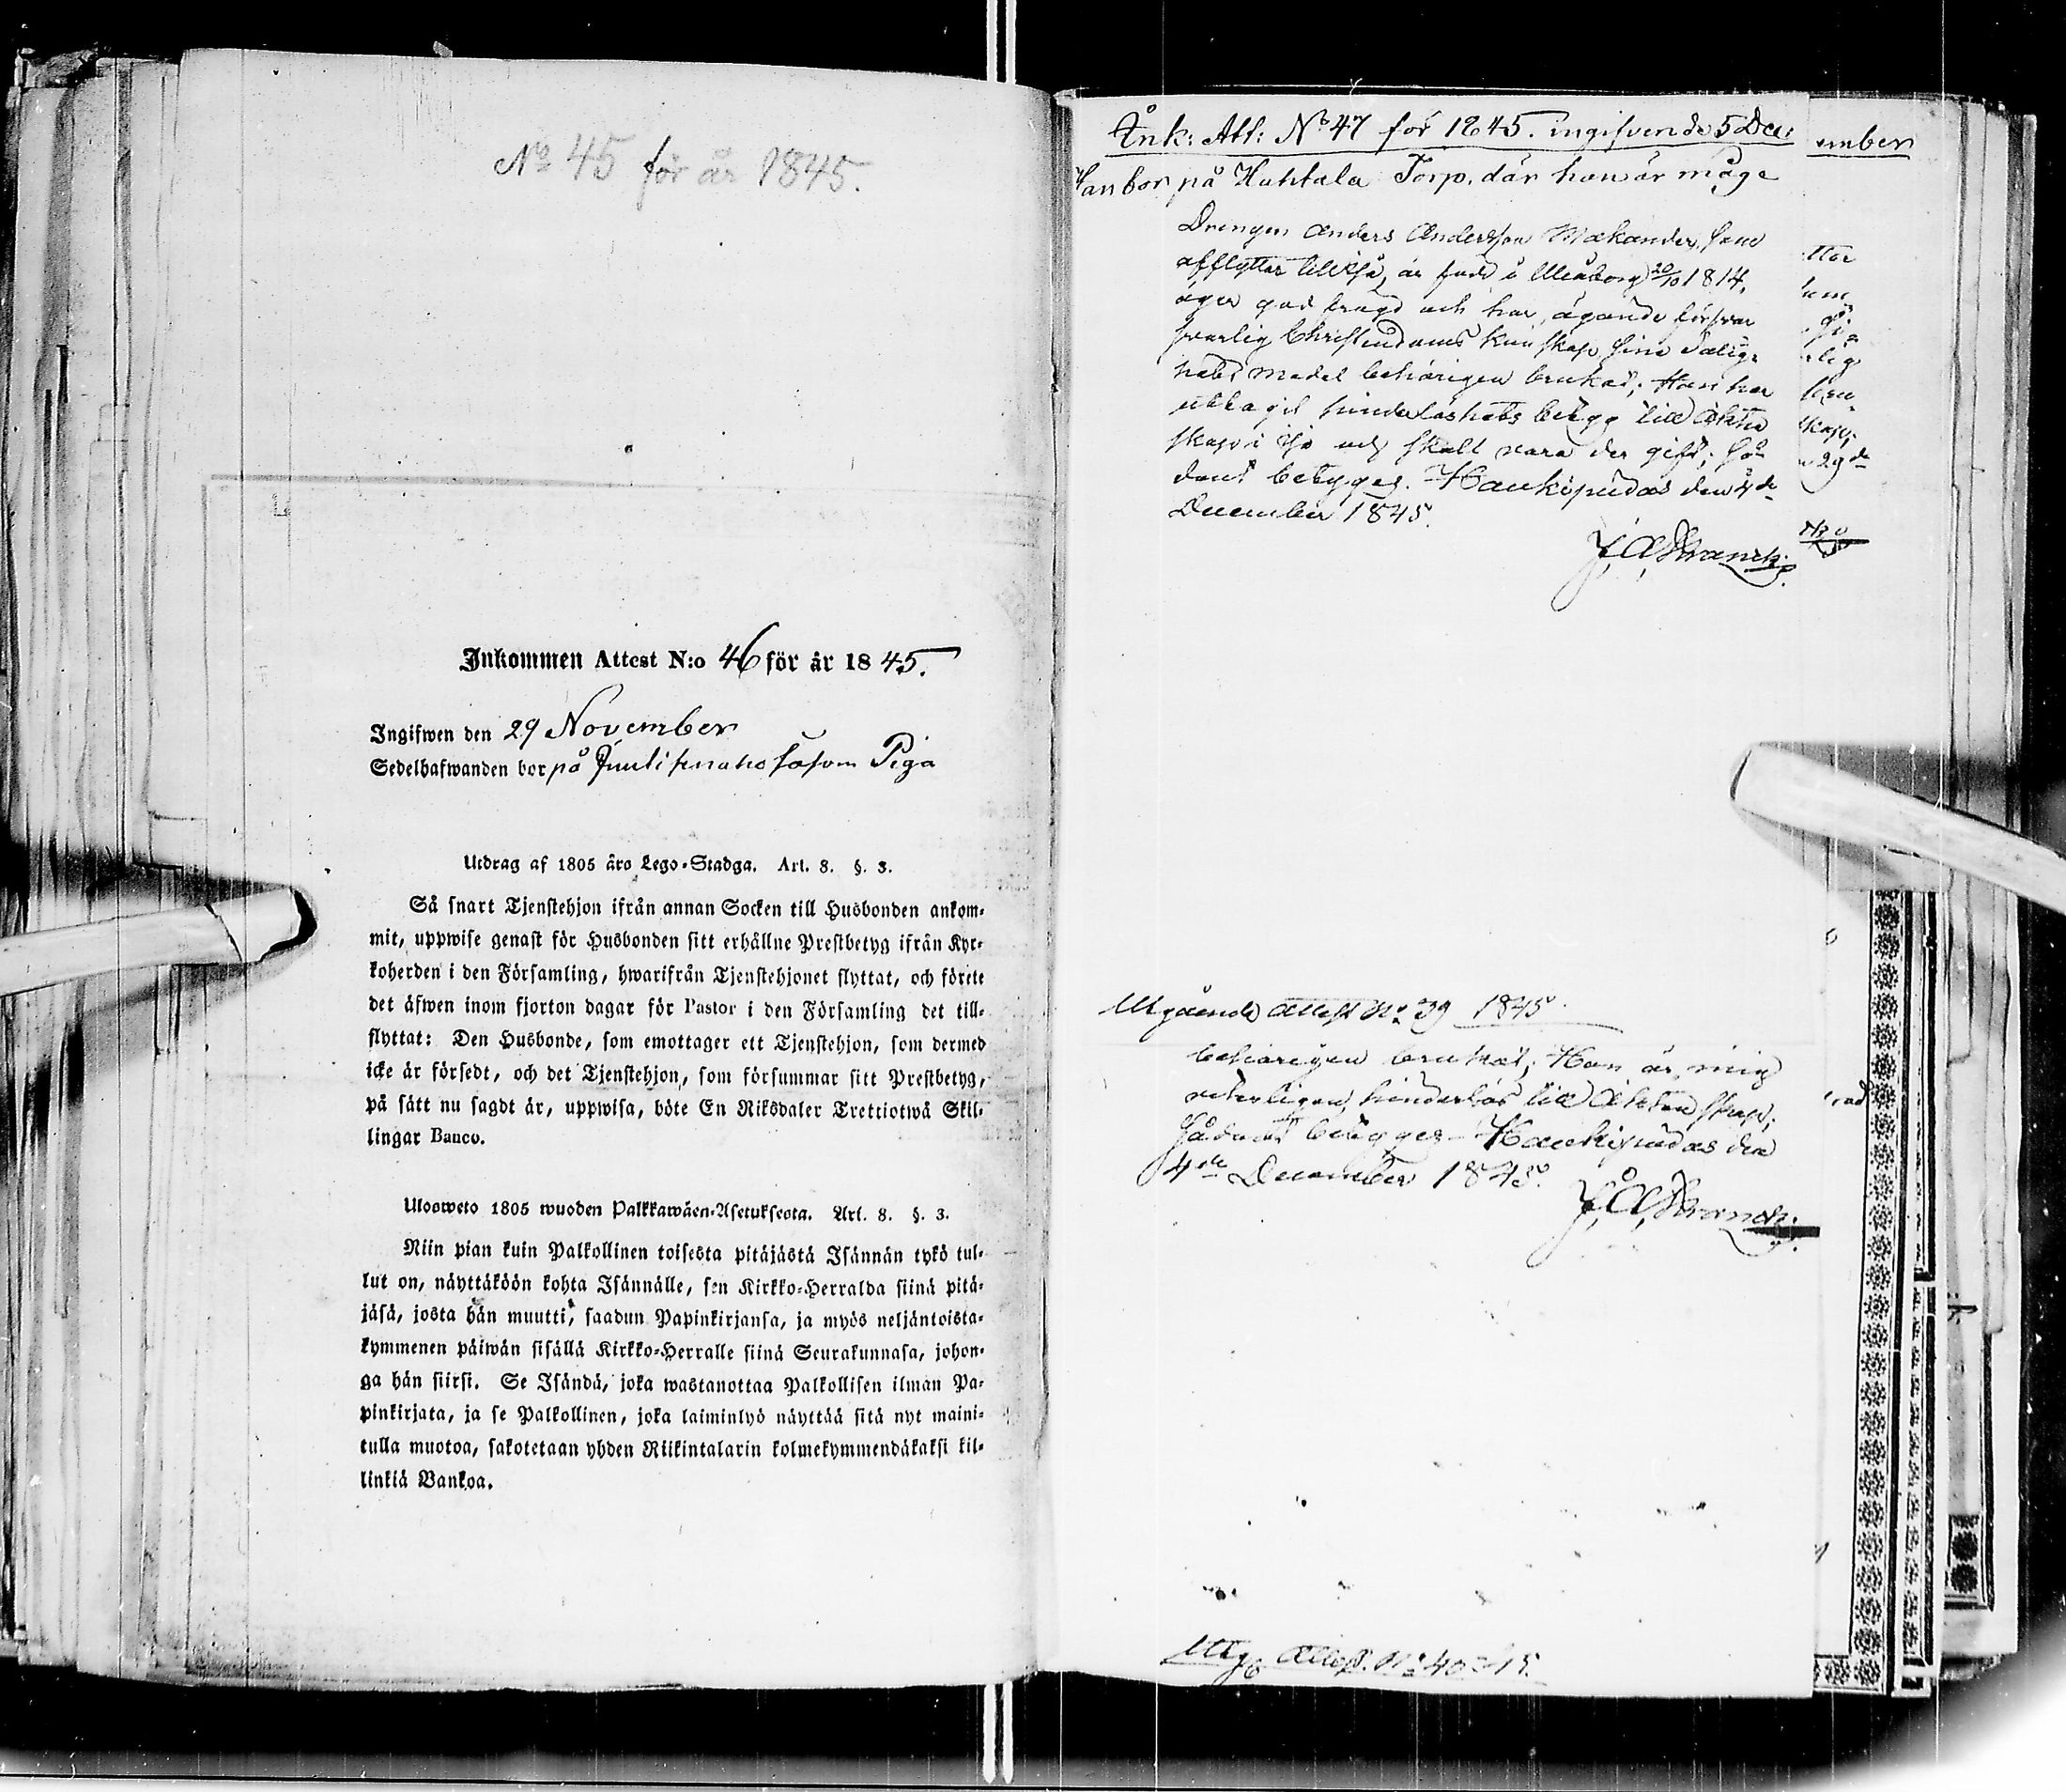 No 45 för år 1845.
Inkommen Attest N:o 46 för år 1845.
Ingifwen den 29 November
Sedelhafwanden bor på såsom Piga
Utdrag af 1805 års Lego-Stadga. Art. 8. §. 3.
Så snart Tjenstehjon ifrån annan Socken till Husbonden ankom-
mit, uppwise genast för Husbonden sitt erhållne Prestbetyg ifrån Kyr-
koherden i den Församling, hwarifrån Tjenstehjonet flyttat, och förete
det äfwen inom fjorton dagar för Pastor i den Församling det till-
flyttat: Den Husbonde, som emottager ett Tjenstehjon, som dermed
icke är försedt, och det Tjenstehjon, som försummar sitt Prestbetyg,
på sätt nu sagdt är, uppwisa, böte En Riksdaler Trettiotwå Skil-
lingar Banco.
Ulosweto 1805 wuoden Palkkawäen-Asetuksesta. Art. 8. §. 3.
Niin pian kuin Palkollinen toisesta pitäjästä Isännän tykö tul-
lut on, näyttäköön kohta Isännälle, sen Kirkko-Herralda siinä pitä-
jäsä, josta hän muutti, saadun Papinkirjansa, ja myös neljäntoista-
kymmenen päiwän sisällä Kirkko-Herralle siinä Seurakunnasa, johon-
ga hän siirsi. Se Isändä, joka wastanottaa Palkollisen ilman Pa-
pinkirjata, ja se Palkollinen, joka laiminlyö näyttää sitä nyt maini-
tulla muotoa, sakotetaan yhden Riikintalarin kolmekymmendäkaksi kil-
linkiä Bankoa.
Ank: Att: No 47 för 1845. ingifven de 5 December
Han bor på Huhtala Torp, där han är måge
Drengen Anders Andersson Makander, som
afflyttar till Ijo, är född i Uleåborg 20/10 1814,
äger god frägd och har, ägande försvar
svarlig Christendoms kunskap sine Salig-
hets medel behörigen brukat; Han har
uttagit hinderlöshets betyg till Äkten
skap i Ijo och skall vara der gift; så-
dant betyges. Haukipudas den 4de
December 1845.
J. A. Franck.
Utgående Attest No 39 1845.
behörigen brukat; Han är, mig
veterligen, hinderlös till Äktenskap;
Sådant betyges Haukipudas den
4de December 1845.
J. A. Franck.
Utg. Attest. No 40 45.